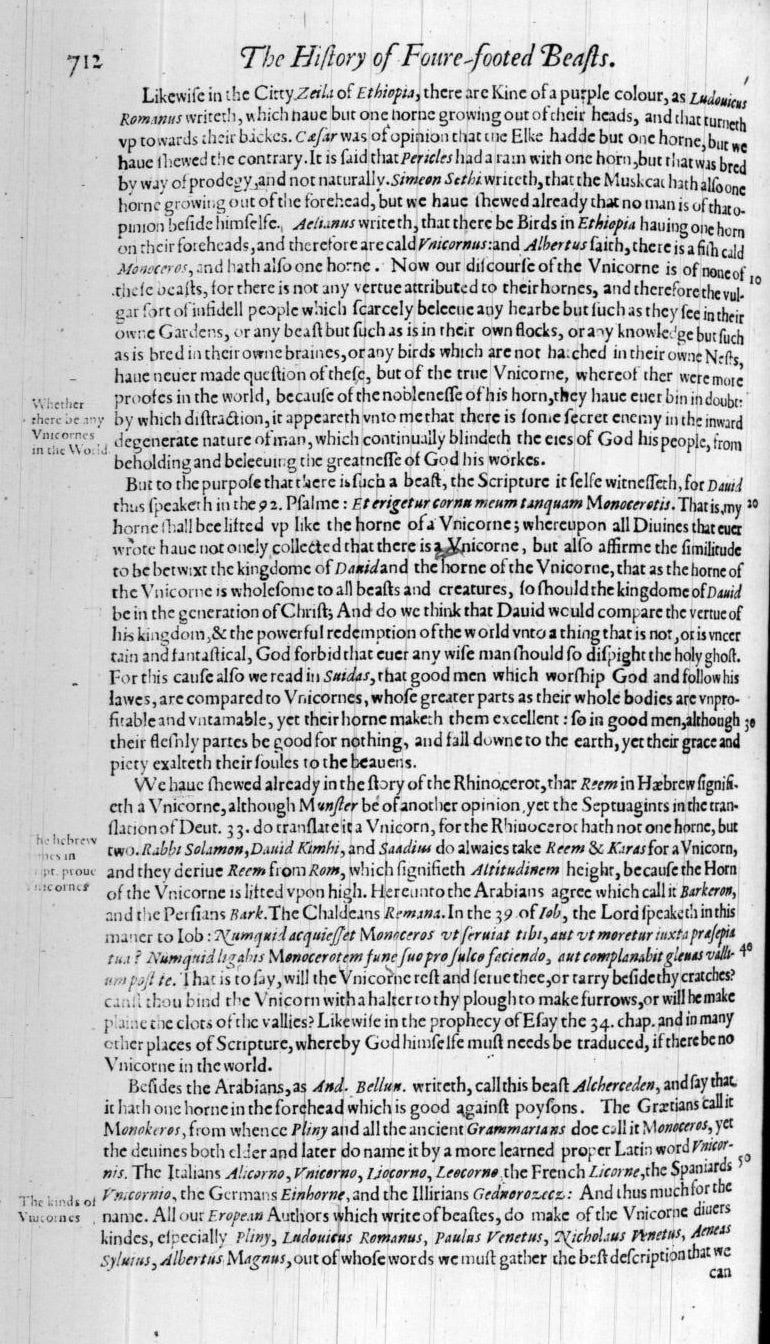 712 The Hiſtory of Foure-footed Beaſts.
Likewiſe in the Citty Zeila of Ethiopia, there are Kine of a purple colour, as Ludouicus
Romanus writeth, which haue but one horne growing out of their heads, and that turneth
vp towards their backes. Cæſar was of opinion that the Elke hadde but one horne, but we
haue ſhewed the contrary. It is ſaid that Pericles had a ram with one horn, but that was bred
by way of prodegy, and not naturally. Simeon Sethi writeth, that the Muskcat hath alſo one
horne growing out of the forehead, but we haue ſhewed already that no man is of that o-
pinion beſide himſelfe. Aelianus writeth, that there be Birds in Ethiopia hauing one horn
on their foreheads, and therefore are cald Vnicornus: and Albertus ſaith, there is a fiſh cald
Monoceros, and hath alſo one horne. Now our diſcourſe of the Vnicorne is of none of
10
theſe beaſts, for there is not any vertue attributed to their hornes, and therefore the vul-
gar ſort of infidell people which ſcarcely beleeue any hearbe but ſuch as they ſee in their
owne Gardens, or any beaſt but ſuch as is in their own flocks, or any knowledge but ſuch
as is bred in their owne braines, or any birds which are not hatched in their owne Neſts,
haue neuer made queſtion of theſe, but of the true Vnicorne, whereof ther were more
proofes in the world, becauſe of the nobleneſſe of his horn, they haue euer bin in doubt:
Whether
there be any
Vnicornes
in the World.
by which diſtraction, it appeareth vnto me that there is ſome ſecret enemy in the inward
degenerate nature of man, which continually blindeth the eies of God his people, from
beholding and beleeuing the greatneſſe of God his workes.
But to the purpoſe that there is ſuch a beaſt, the Scripture it ſelfe witneſſeth, for Dauid
thus ſpeaketh in the 92. Pſalme: Et erigetur cornu meum tanquam Monocerotis. That is, my
20
horne ſhall bee lifted vp like the horne of a Vnicorne; whereupon all Diuines that euer
wrote haue not onely collected that there is a Vnicorne, but alſo affirme the ſimilitude
to be betwixt the kingdome of Dauid and the horne of the Vnicorne, that as the horne of
the Vnicorne is wholeſome to all beaſts and creatures, ſo ſhould the kingdome of Dauid
be in the generation of Chriſt; And do we think that Dauid would compare the vertue of
his kingdom, & the powerful redemption of the world vnto a thing that is not, or is vncer
tain and fantaſtical, God forbid that euer any wiſe man ſhould ſo diſpight the holy ghoſt.
For this cauſe alſo we read in Suidas, that good men which worſhip God and follow his
lawes, are compared to Vnicornes, whoſe greater parts as their whole bodies are vnpro-
fitable and vntamable, yet their horne maketh them excellent: ſo in good men, although
30
their fleſhly partes be good for nothing, and fall downe to the earth, yet their grace and
piety exalteth their ſoules to the heauens.
We haue ſhewed already in the ſtory of the Rhinocerot, that Reem in Hæbrew ſignifi-
eth a Vnicorne, although Munſter be of another opinion, yet the Septuagints in the tran-
ſlation of Deut. 33. do tranſlate it a Vnicorn, for the Rhinocerot hath not one horne, but
The hebrew
names in
ſcript. proue
Vnicornes
two. Rabbi Solamon, Dauid Kimhi, and Saadius do alwaies take Reem & Karas for a Vnicorn,
and they deriue Reem from Rom, which ſignifieth Altitudinem height, becauſe the Horn
of the Vnicorne is lifted vpon high. Hereunto the Arabians agree which call it Barkeron,
and the Perſians Bark. The Chaldeans Remana. In the 39 of Iob, the Lord ſpeaketh in this
maner to Iob: Numquid acquieſſet Monoceros vt ſeruiat tibi, aut vt moretur iuxta præſepia
tua? Numquid ligabis Monocerotem fune ſuo pro ſulco faciendo, aut complanabit glenas valli-
40
um poſt te. That is to ſay, will the Vnicorne reſt and ſerue thee, or tarry beſide thy cratches?
canſt thou bind the Vnicorn with a halter to thy plough to make furrows, or will he make
plaine the clots of the vallies? Likewiſe in the prophecy of Eſay the 34. chap. and in many
other places of Scripture, whereby God himſelfe muſt needs be traduced, if there be no
Vnicorne in the world.
Beſides the Arabians, as And. Bellun. writeth, call this beaſt Alcherceden, and ſay that
it hath one horne in the forehead which is good againſt poyſons. The Grætians call it
Monokeros, from whence Pliny and all the ancient Grammarians doe call it Monoceros, yet
the deuines both elder and later do name it by a more learned proper Latin word Vnicor-
nis. The Italians Alicorno, Vnicorno, Liocorno, Leocorno, the French Licorne, the Spaniards
50
Vnicornio, the Germans Einhorne, and the Illirians Gednorozecz: And thus much for the
The kinds of
Vnicornes
name. All our Eropean Authors which write of beaſtes, do make of the Vnicorne diuers
kindes, eſpecially Pliny, Ludouicus Romanus, Paulus Venetus, Nicholaus Venetus, Aeneas
Syluius, Albertus Magnus, out of whoſe words we muſt gather the beſt deſcription that we
can